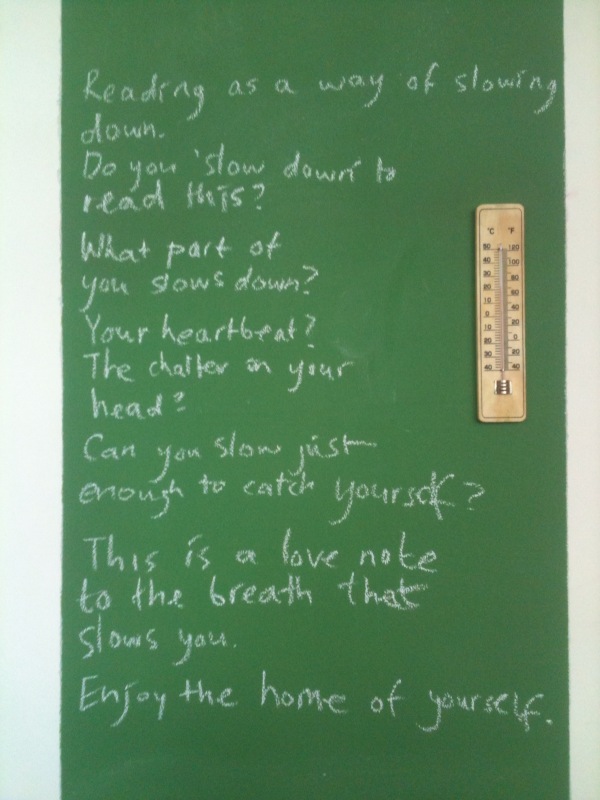 Reading as a way of slowing
down.
Do you 'slow down' to
read this?
What part of
you slows down?
Your heartbeat?
The chatter in your
head?
Can you slow just
enough to catch yourself?
This is a love note
to the breath that
slows you.
Enjoy the home of yourself.
°C °F
50 120
40 100
30 80
20 60
10 40
0 20
10 0
20 20
30 40
40